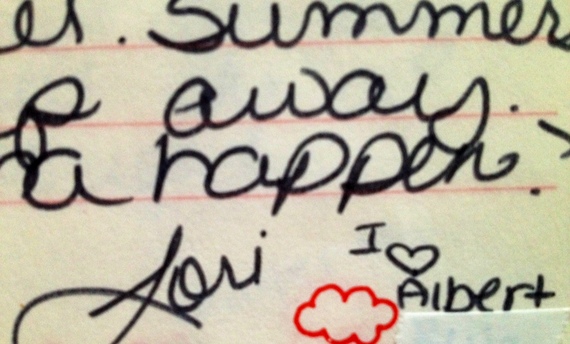 er. Summers
e away.
a happen.
Lori
I ♡
Albert